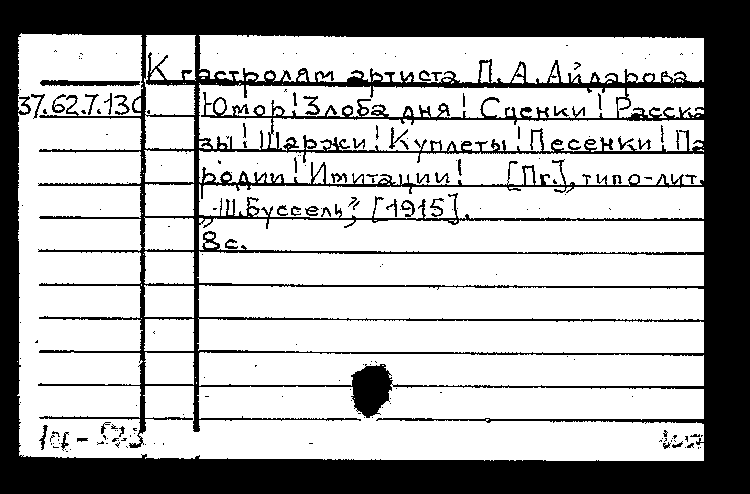 К гастролям артиста П.А.Айдарова.
37.62.7.130. Юмор! Злоба дня! Сценки! Расска
зы! Шаржи! Куплеты! Песенки! Па
родии! Имитации! [Пг.], типо-лит.
„Ш.Буссель", [1915].
8с.